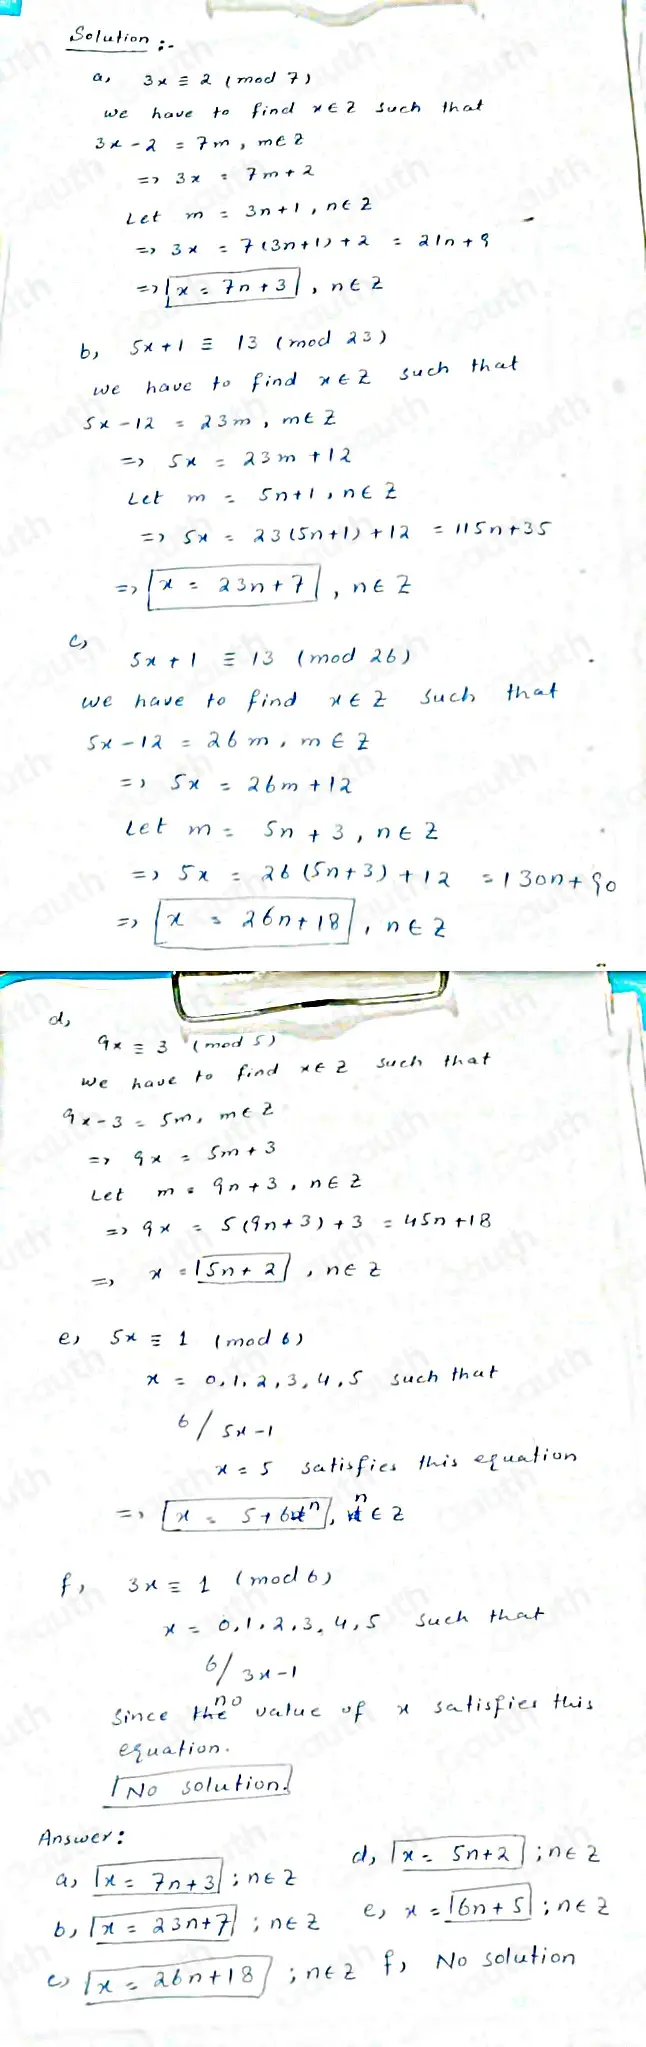 Solution :-
a, 3x ≡ 2 (mod 7)
we have to find x ∈ Z such that
3x - 2 = 7m, m ∈ Z
=> 3x = 7m + 2
Let m = 3n+1, n ∈ Z
=> 3x = 7(3n+1) + 2 = 21n + 9
=> x = 7n + 3, n ∈ Z
b, 5x + 1 ≡ 13 (mod 23)
we have to find x ∈ Z such that
5x - 12 = 23m, m ∈ Z
=> 5x = 23m + 12
Let m = 5n+1, n ∈ Z
=> 5x = 23(5n+1) + 12 = 115n+35
=> x = 23n + 7, n ∈ Z
c,
5x + 1 ≡ 13 (mod 26)
we have to find x ∈ Z such that
5x - 12 = 26m, m ∈ Z
=> 5x = 26m + 12
Let m = 5n + 3, n ∈ Z
=> 5x = 26(5n+3) + 12 = 130n + 90
=> x = 26n + 18, n ∈ Z
d,
9x ≡ 3 (mod 5)
we have to find x ∈ Z such that
9x - 3 = 5m, m ∈ Z
=> 9x = 5m + 3
Let m = 9n + 3, n ∈ Z
=> 9x = 5(9n+3) + 3 = 45n + 18
=> x = 5n + 2, n ∈ Z
e, 5x ≡ 1 (mod 6)
x = 0, 1, 2, 3, 4, 5 such that
6 / 5x - 1
x = 5 satisfies this equation
=> x = 5 + 6n, n ∈ Z
f, 3x ≡ 1 (mod 6)
x = 0, 1, 2, 3, 4, 5 such that
6 / 3x - 1
Since the no value of x satisfies this
equation.
No solution.
Answer:
a, x = 7n + 3 ; n ∈ Z
b, x = 23n + 7 ; n ∈ Z
c, x = 26n + 18 ; n ∈ Z
d, x = 5n + 2 ; n ∈ Z
e, x = 6n + 5 ; n ∈ Z
f, No solution